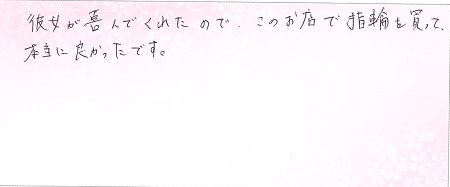 彼女が喜んでくれたので、このお店で指輪を買って、
本当に良かったです。